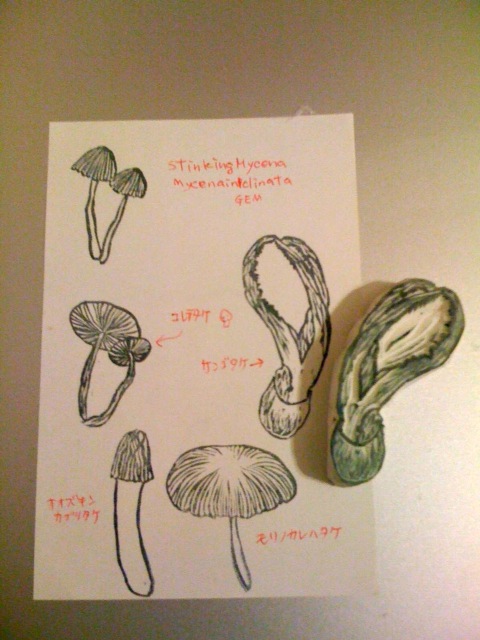 Stinking Mycena
Mycenainklinata
GEM
コレラタケ
ケンゴタケ→
オオズキン
カブリタケ
モリノカレハタケ